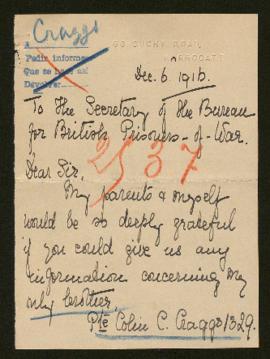 Craggs
A
Pedir informe
Que se haga así
Devolver
Dec. 6. 1916.
To the Secretary of the Bureau
for British Prisoners-of-War.
2537
Dear Sir,
My parents & myself
would be so deeply grateful
if you could give us any
information concerning my
only brother,
Pte Colin C. Craggs 1329.